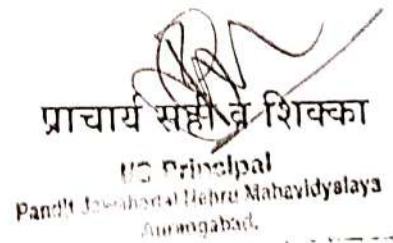 प्राचार्य सही व शिक्का
I/C Principal
Pandit Jawaharlal Nehru Mahavidyalaya
Aurangabad.